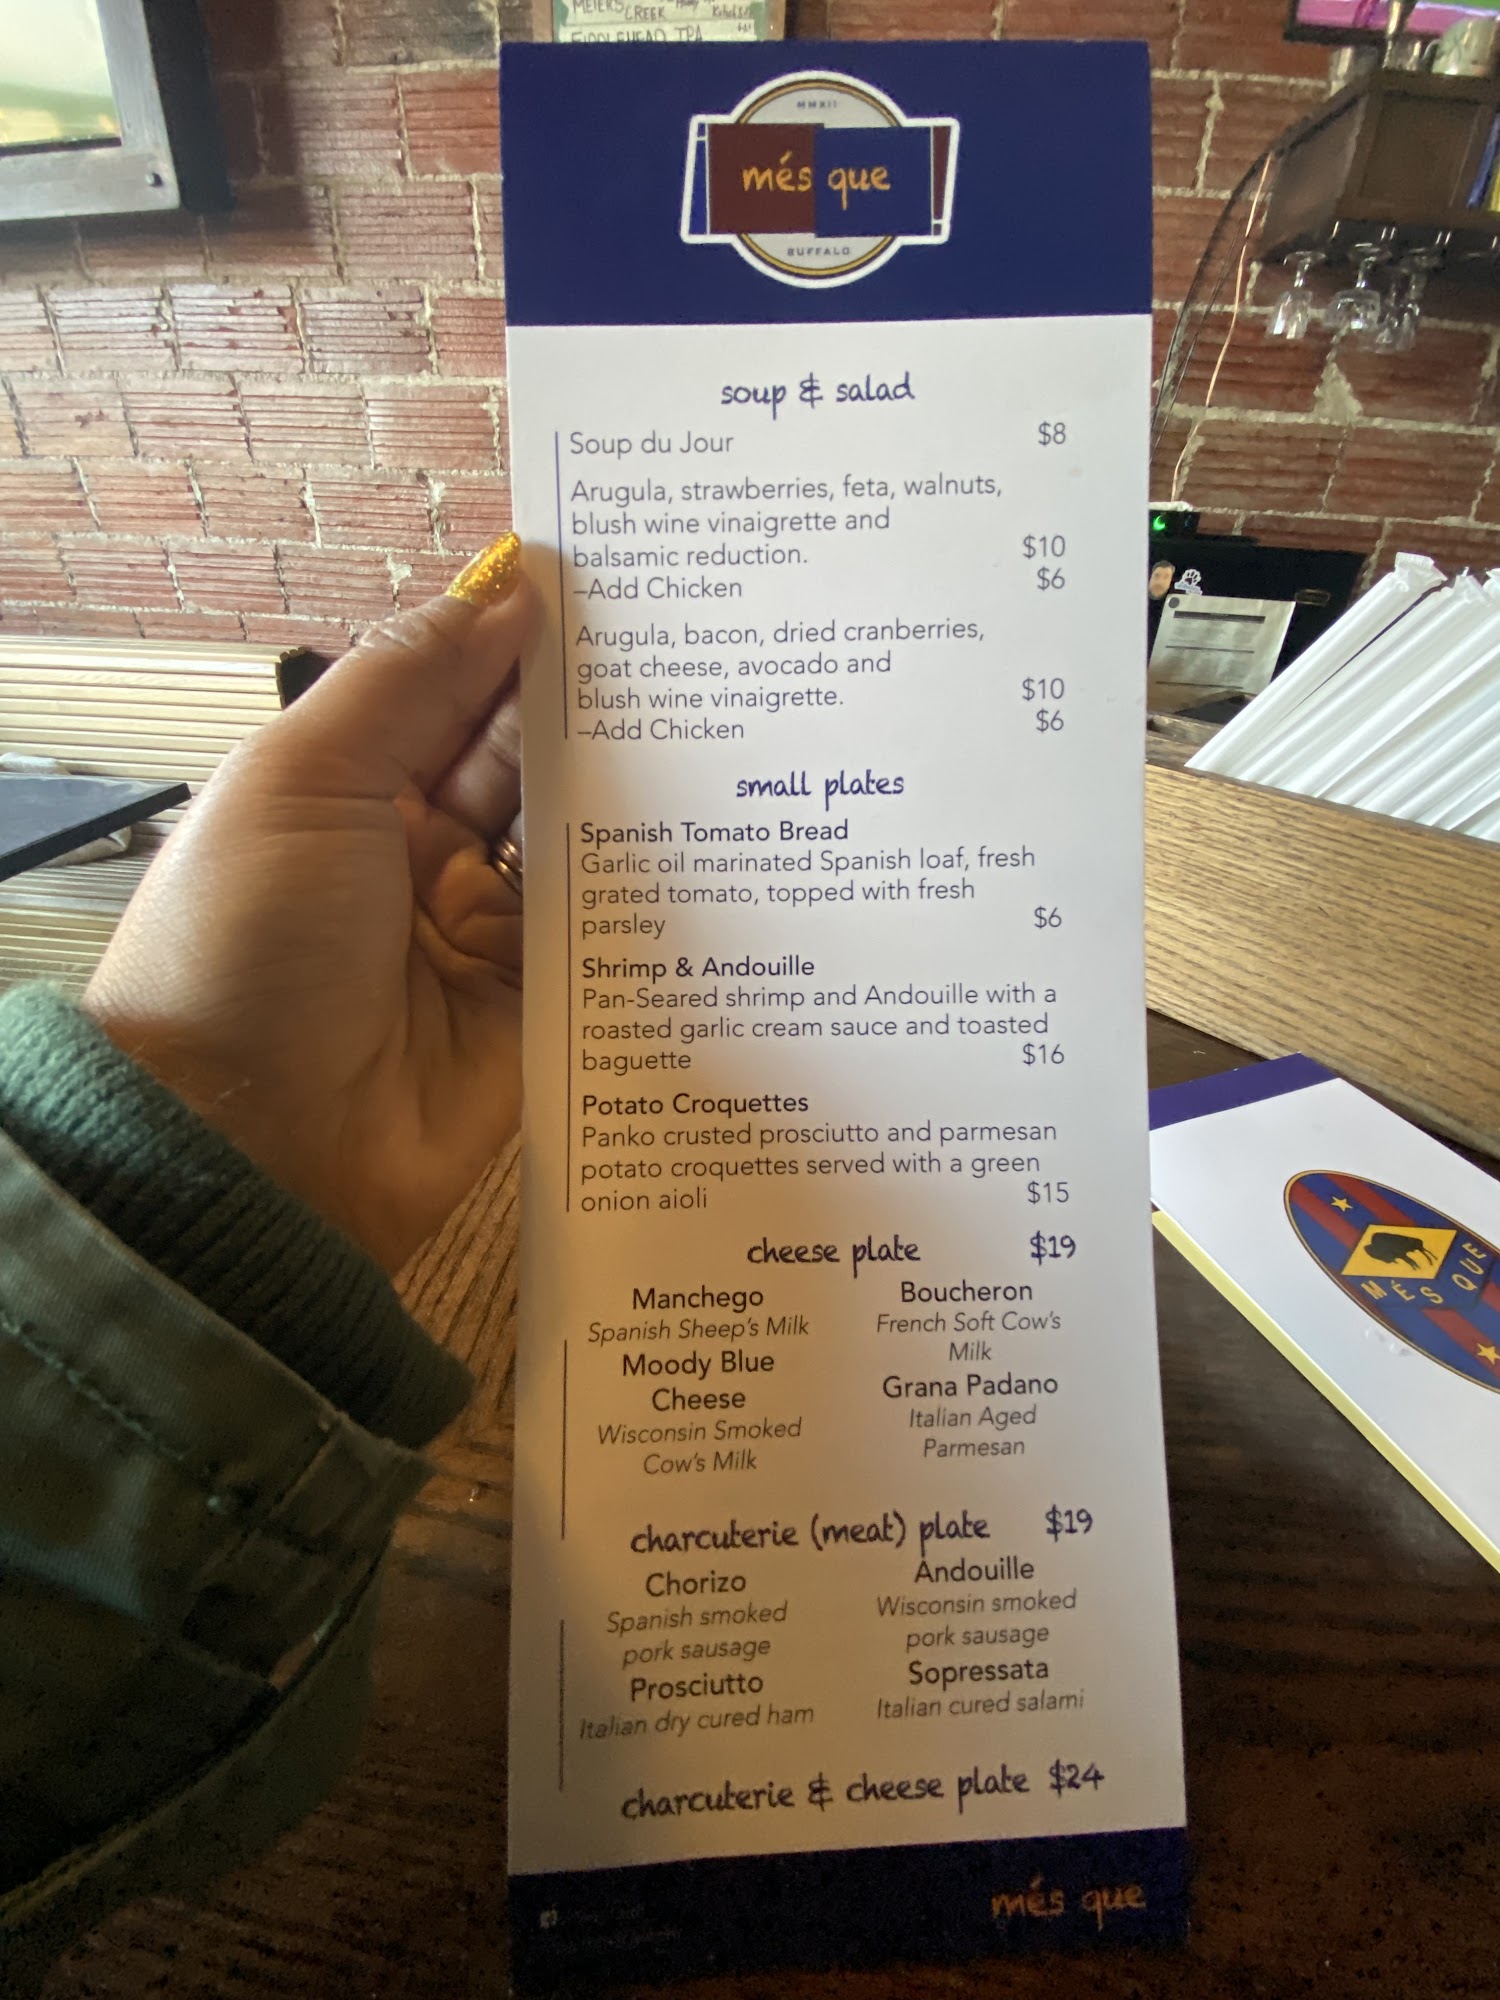 MEIERS
CREEK
FIDDLEHEAD IPA
MMXII
més que
BUFFALO
soup & salad
Soup du Jour $8
Arugula, strawberries, feta, walnuts,
blush wine vinaigrette and
balsamic reduction. $10
–Add Chicken $6
Arugula, bacon, dried cranberries,
goat cheese, avocado and
blush wine vinaigrette. $10
–Add Chicken $6
small plates
Spanish Tomato Bread
Garlic oil marinated Spanish loaf, fresh
grated tomato, topped with fresh
parsley $6
Shrimp & Andouille
Pan-Seared shrimp and Andouille with a
roasted garlic cream sauce and toasted
baguette $16
Potato Croquettes
Panko crusted prosciutto and parmesan
potato croquettes served with a green
onion aioli $15
cheese plate $19
Manchego
Spanish Sheep's Milk
Moody Blue
Cheese
Wisconsin Smoked
Cow's Milk
Boucheron
French Soft Cow's
Milk
Grana Padano
Italian Aged
Parmesan
charcuterie (meat) plate $19
Chorizo
Spanish smoked
pork sausage
Prosciutto
Italian dry cured ham
Andouille
Wisconsin smoked
pork sausage
Sopressata
Italian cured salami
charcuterie & cheese plate $24
més que
MÉS QUE